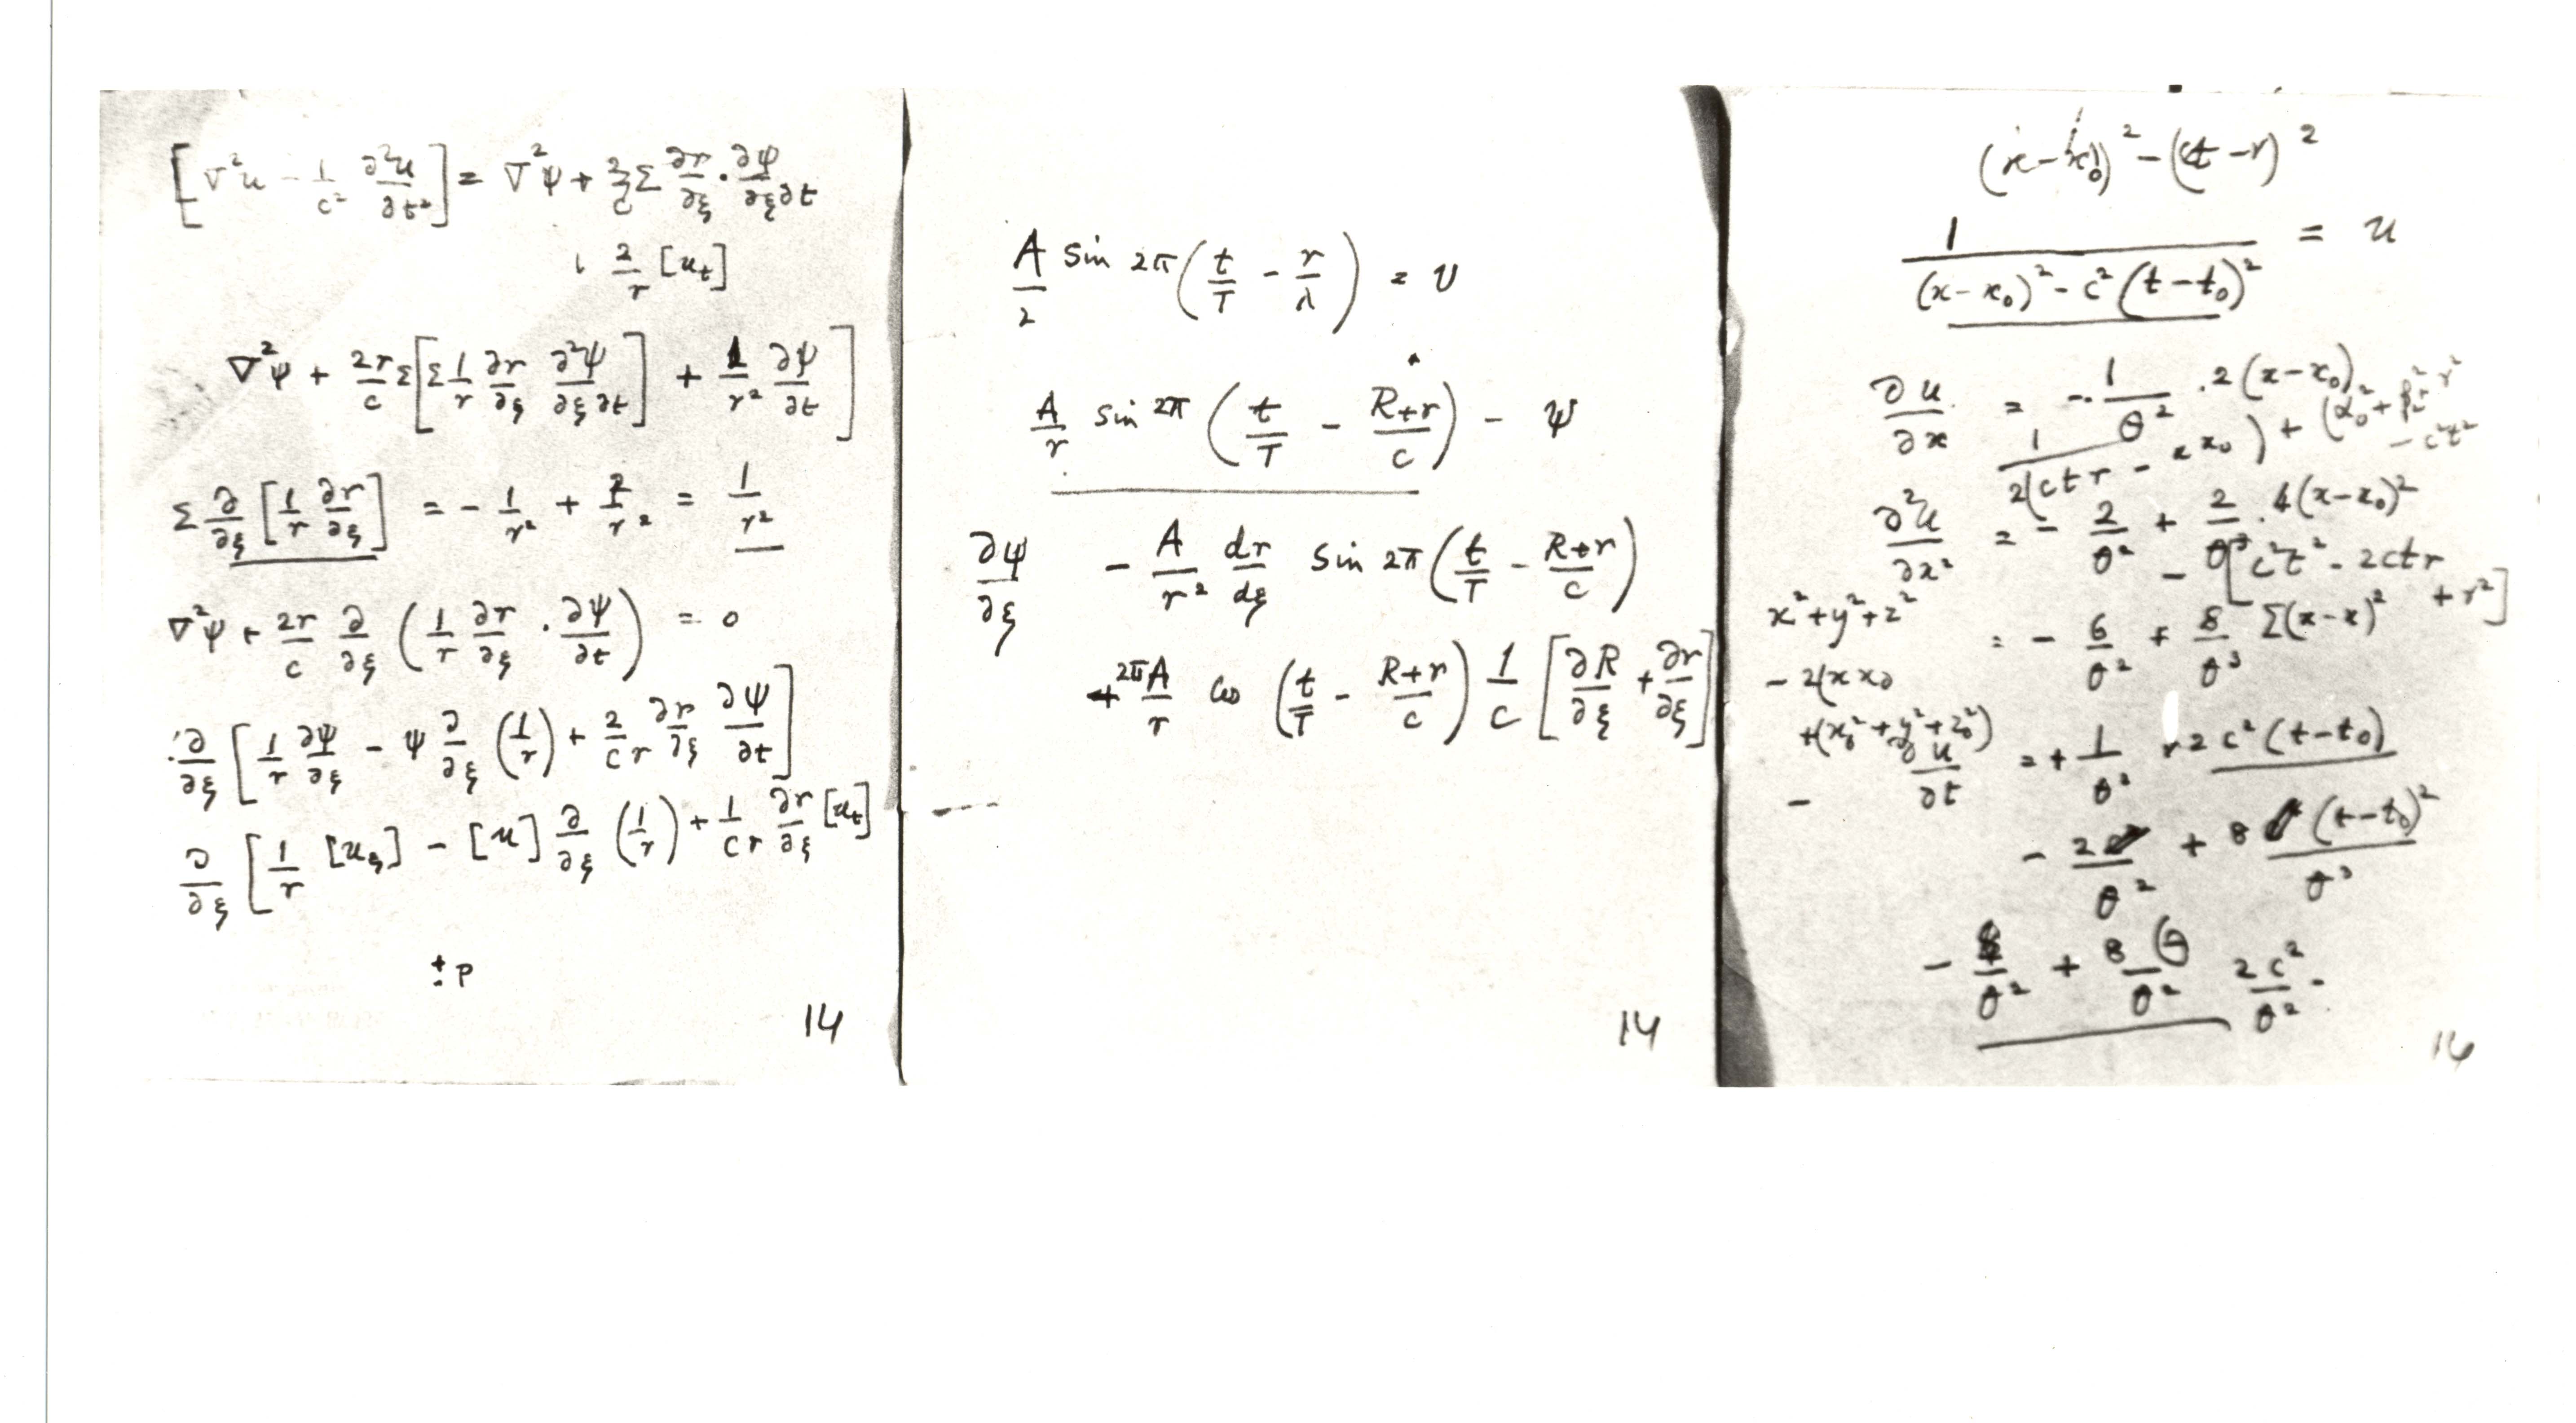 [∇²u - 1/c² ∂²u/∂t²] = ∇²ψ + 2/c Σ ∂r/∂ξ · ∂ψ/∂ξ∂t
2/r [u_t]
∇²ψ + 2r/c Σ[Σ 1/r ∂r/∂ξ ∂²ψ/∂ξ∂t] + 1/r² ∂ψ/∂t]
Σ ∂/∂ξ [1/r ∂r/∂ξ] = - 1/r² + 2/r² = 1/r²
∇²ψ + 2r/c ∂/∂ξ (1/r ∂r/∂ξ · ∂ψ/∂t) = 0
∂/∂ξ [1/r ∂ψ/∂ξ - ψ ∂/∂ξ (1/r) + 2/cr ∂r/∂ξ ∂ψ/∂t]
∂/∂ξ [1/r [u_ξ] - [u] ∂/∂ξ (1/r) + 1/cr ∂r/∂ξ [u_t]
± p
14
A/2 sin 2π (t/T - r/λ) = U
A/r sin 2π (t/T - R+r/c) - ψ
∂ψ/∂ξ - A/r² dr/dξ sin 2π (t/T - R+r/c)
+ 2πA/r cos (t/T - R+r/c) 1/c [∂R/∂ξ + ∂r/∂ξ]
14
(x-x₀)² - (ct-r)²
1/((x-x₀)² - c²(t-t₀)²) = u
∂u/∂x = - 1/θ² · 2(x-x₀)
1/2(ctr - xx₀) + (α₀² + β² r² - c²t²
∂²u/∂x² = - 2/θ² + 2/θ³ · 4(x-x₀)²
- [c²t² - 2ctr + r²]
x²+y²+z²
= - 6/θ² + 8/θ³ Σ(x-x)²
- 2(xx₀
+(x₀²+y₀²+z₀²)
-
∂u/∂t = + 1/θ² 2c²(t-t₀)
- 2/θ² + 8 (t-t₀)²/θ³
- /θ² + 8θ/θ² 2c²/θ²
14